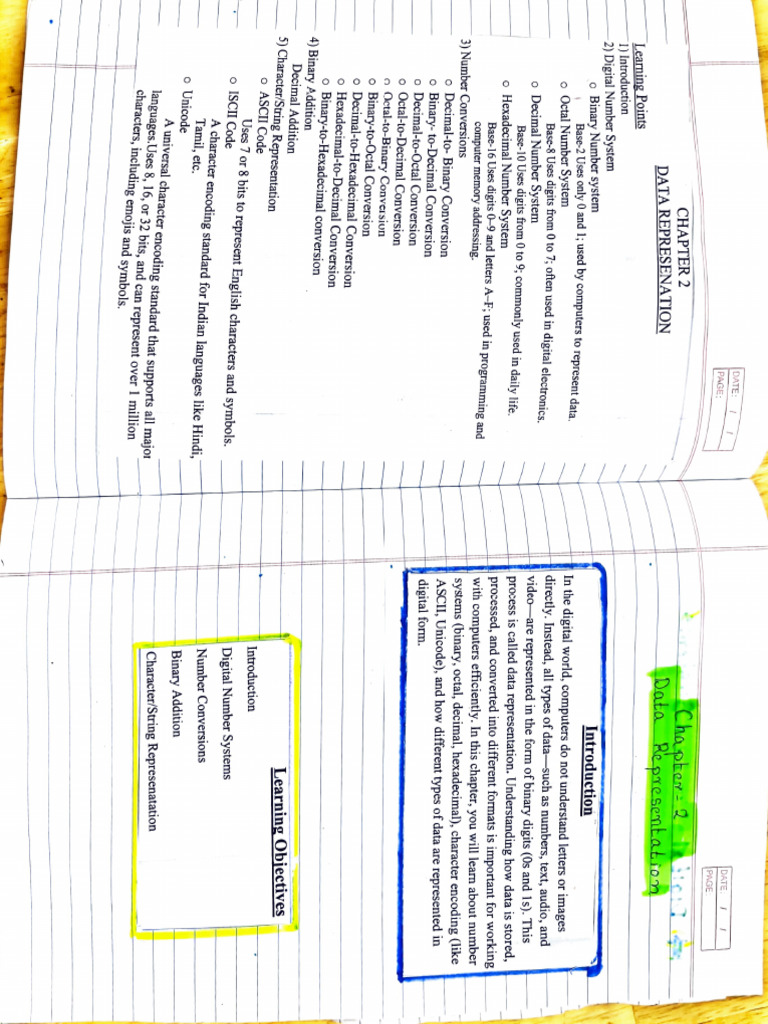 DATE: / /
PAGE:
CHAPTER 2
DATA REPRESENATION
Learning Points
1) Introduction
2) Digital Number System
o Binary Number system
Base-2 Uses only 0 and 1; used by computers to represent data.
o Octal Number System
Base-8 Uses digits from 0 to 7; often used in digital electronics.
o Decimal Number System
Base-10 Uses digits from 0 to 9; commonly used in daily life.
o Hexadecimal Number System
Base-16 Uses digits 0–9 and letters A–F; used in programming and
computer memory addressing.
3) Number Conversions
o Decimal-to- Binary Conversion
o Binary- to-Decimal Conversion
o Decimal-to-Octal Conversion
o Octal-to-Decimal Conversion
o Octal-to-Binary Conversion
o Binary-to-Octal Conversion
o Decimal-to-Hexadecimal Conversion
o Hexadecimal-to-Decimal Conversion
o Binary-to-Hexadecimal conversion
4) Binary Addition
Decimal Addition
5) Character/String Representation
o ASCII Code
Uses 7 or 8 bits to represent English characters and symbols.
o ISCII Code
A character encoding standard for Indian languages like Hindi,
Tamil, etc.
o Unicode
A universal character encoding standard that supports all major
languages.Uses 8, 16, or 32 bits, and can represent over 1 million
characters, including emojis and symbols.
DATE / /
PAGE
Chapter-2
Data Representation
Introduction
In the digital world, computers do not understand letters or images
directly. Instead, all types of data—such as numbers, text, audio, and
video—are represented in the form of binary digits (0s and 1s). This
process is called data representation. Understanding how data is stored,
processed, and converted into different formats is important for working
with computers efficiently. In this chapter, you will learn about number
systems (binary, octal, decimal, hexadecimal), character encoding (like
ASCII, Unicode), and how different types of data are represented in
digital form.
Learning Objectives
Introduction
Digital Number Systems
Number Conversions
Binary Addition
Character/String Represenatation